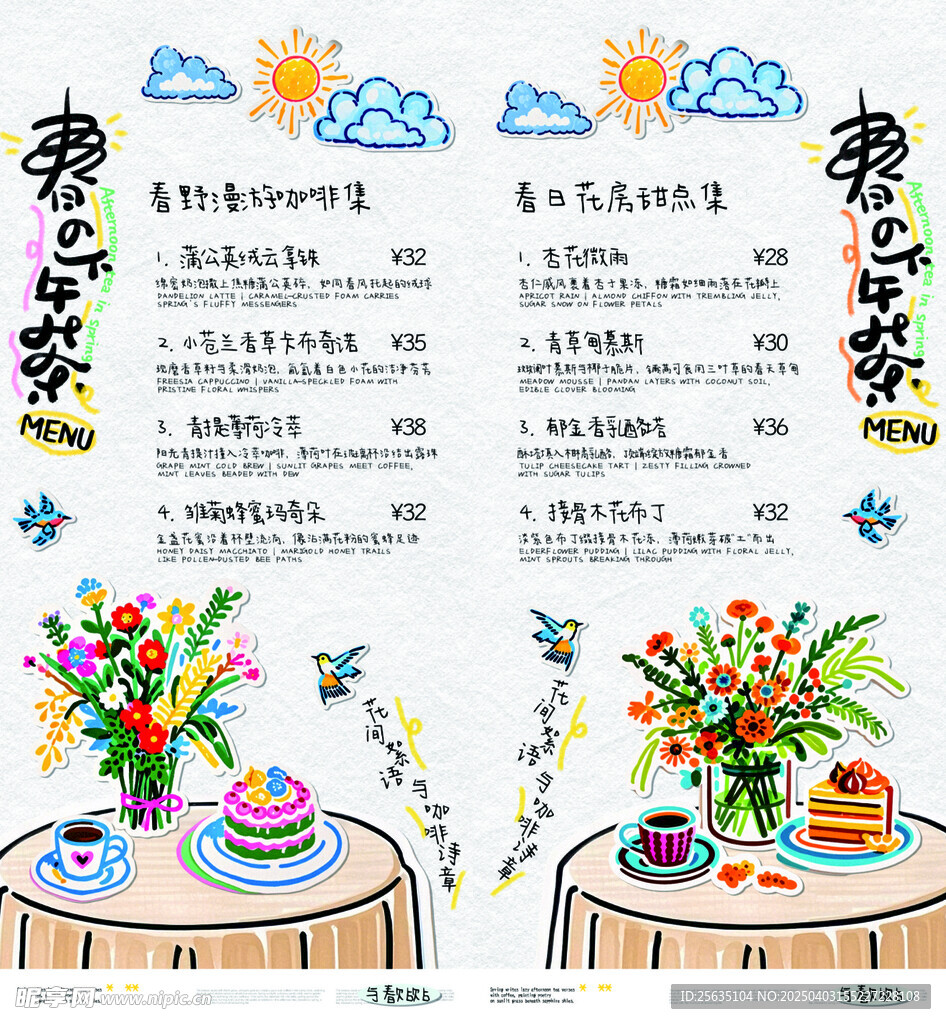 春の下午茶
Afternoon tea in spring
MENU
春野漫游咖啡集
1. 蒲公英绒云拿铁 ¥32
绵密奶泡撒上焦糖蒲公英碎，如同春风托起的绒球
DANDELION LATTE | CARAMEL-CRUSTED FOAM CARRIES
SPRING'S FLUFFY MESSENGERS
2. 小苍兰香草卡布奇诺 ¥35
现磨香草籽与柔滑奶泡，氤氲着白色小花的洁净芬芳
FREESIA CAPPUCCINO | VANILLA-SPECKLED FOAM WITH
PRISTINE FLORAL WHISPERS
3. 青提薄荷冷萃 ¥38
阳光青提汁撞入冷萃咖啡，薄荷叶在玻璃杯沿结出露珠
GRAPE MINT COLD BREW | SUNLIT GRAPES MEET COFFEE,
MINT LEAVES BEADED WITH DEW
4. 雏菊蜂蜜玛奇朵 ¥32
金盏花蜜沿着杯壁流淌，像沾满花粉的蜜蜂足迹
HONEY DAISY MACCHIATO | MARIGOLD HONEY TRAILS
LIKE POLLEN-DUSTED BEE PATHS
花间絮语与咖啡诗章
春日花房甜点集
1. 杏花微雨 ¥28
杏仁戚风裹着杏子果冻，糖霜如细雨落在花瓣上
APRICOT RAIN | ALMOND CHIFFON WITH TREMBLING JELLY,
SUGAR SNOW ON FLOWER PETALS
2. 青草甸慕斯 ¥30
斑斓叶慕斯与椰子脆片，铺满可食用三叶草的春天草甸
MEADOW MOUSSE | PANDAN LAYERS WITH COCONUT SOIL,
EDIBLE CLOVER BLOOMING
3. 郁金香乳酪塔 ¥36
TULIP CHEESECAKE TART | ZESTY FILLING CROWNED
WITH SUGAR TULIPS
4. 接骨木花布丁 ¥32
淡紫色布丁缀接骨木花冻，薄荷嫩芽破"土"而出
ELDERFLOWER PUDDING | LILAC PUDDING WITH FLORAL JELLY,
MINT SPROUTS BREAKING THROUGH
花间絮语与咖啡诗章
春の下午茶
Afternoon tea in spring
MENU
昵享网 www.nipic.cn
与春饮
Spring writes lazy afternoon tea verses
with coffee, painting poetry
on sunlit grass beneath sunshine skies.
ID:25635104 NO:20250403155227228108